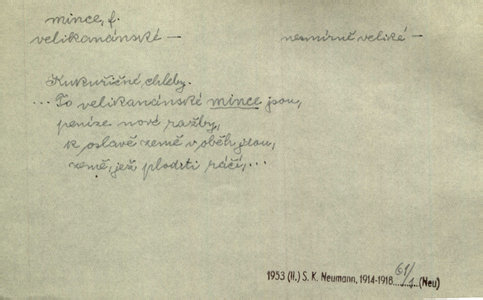 mince, f.
velikananánské — nesmírně veliké —
Kukuřičné chleby.
... To velikananánské mince jsou,
peníze nové ražby,
k oslavě země v oběh jdou,
země, jež ploditi ráčí,...
1953 (H.) S. K. Neumann, 1914-1918 61/1 (Neu)